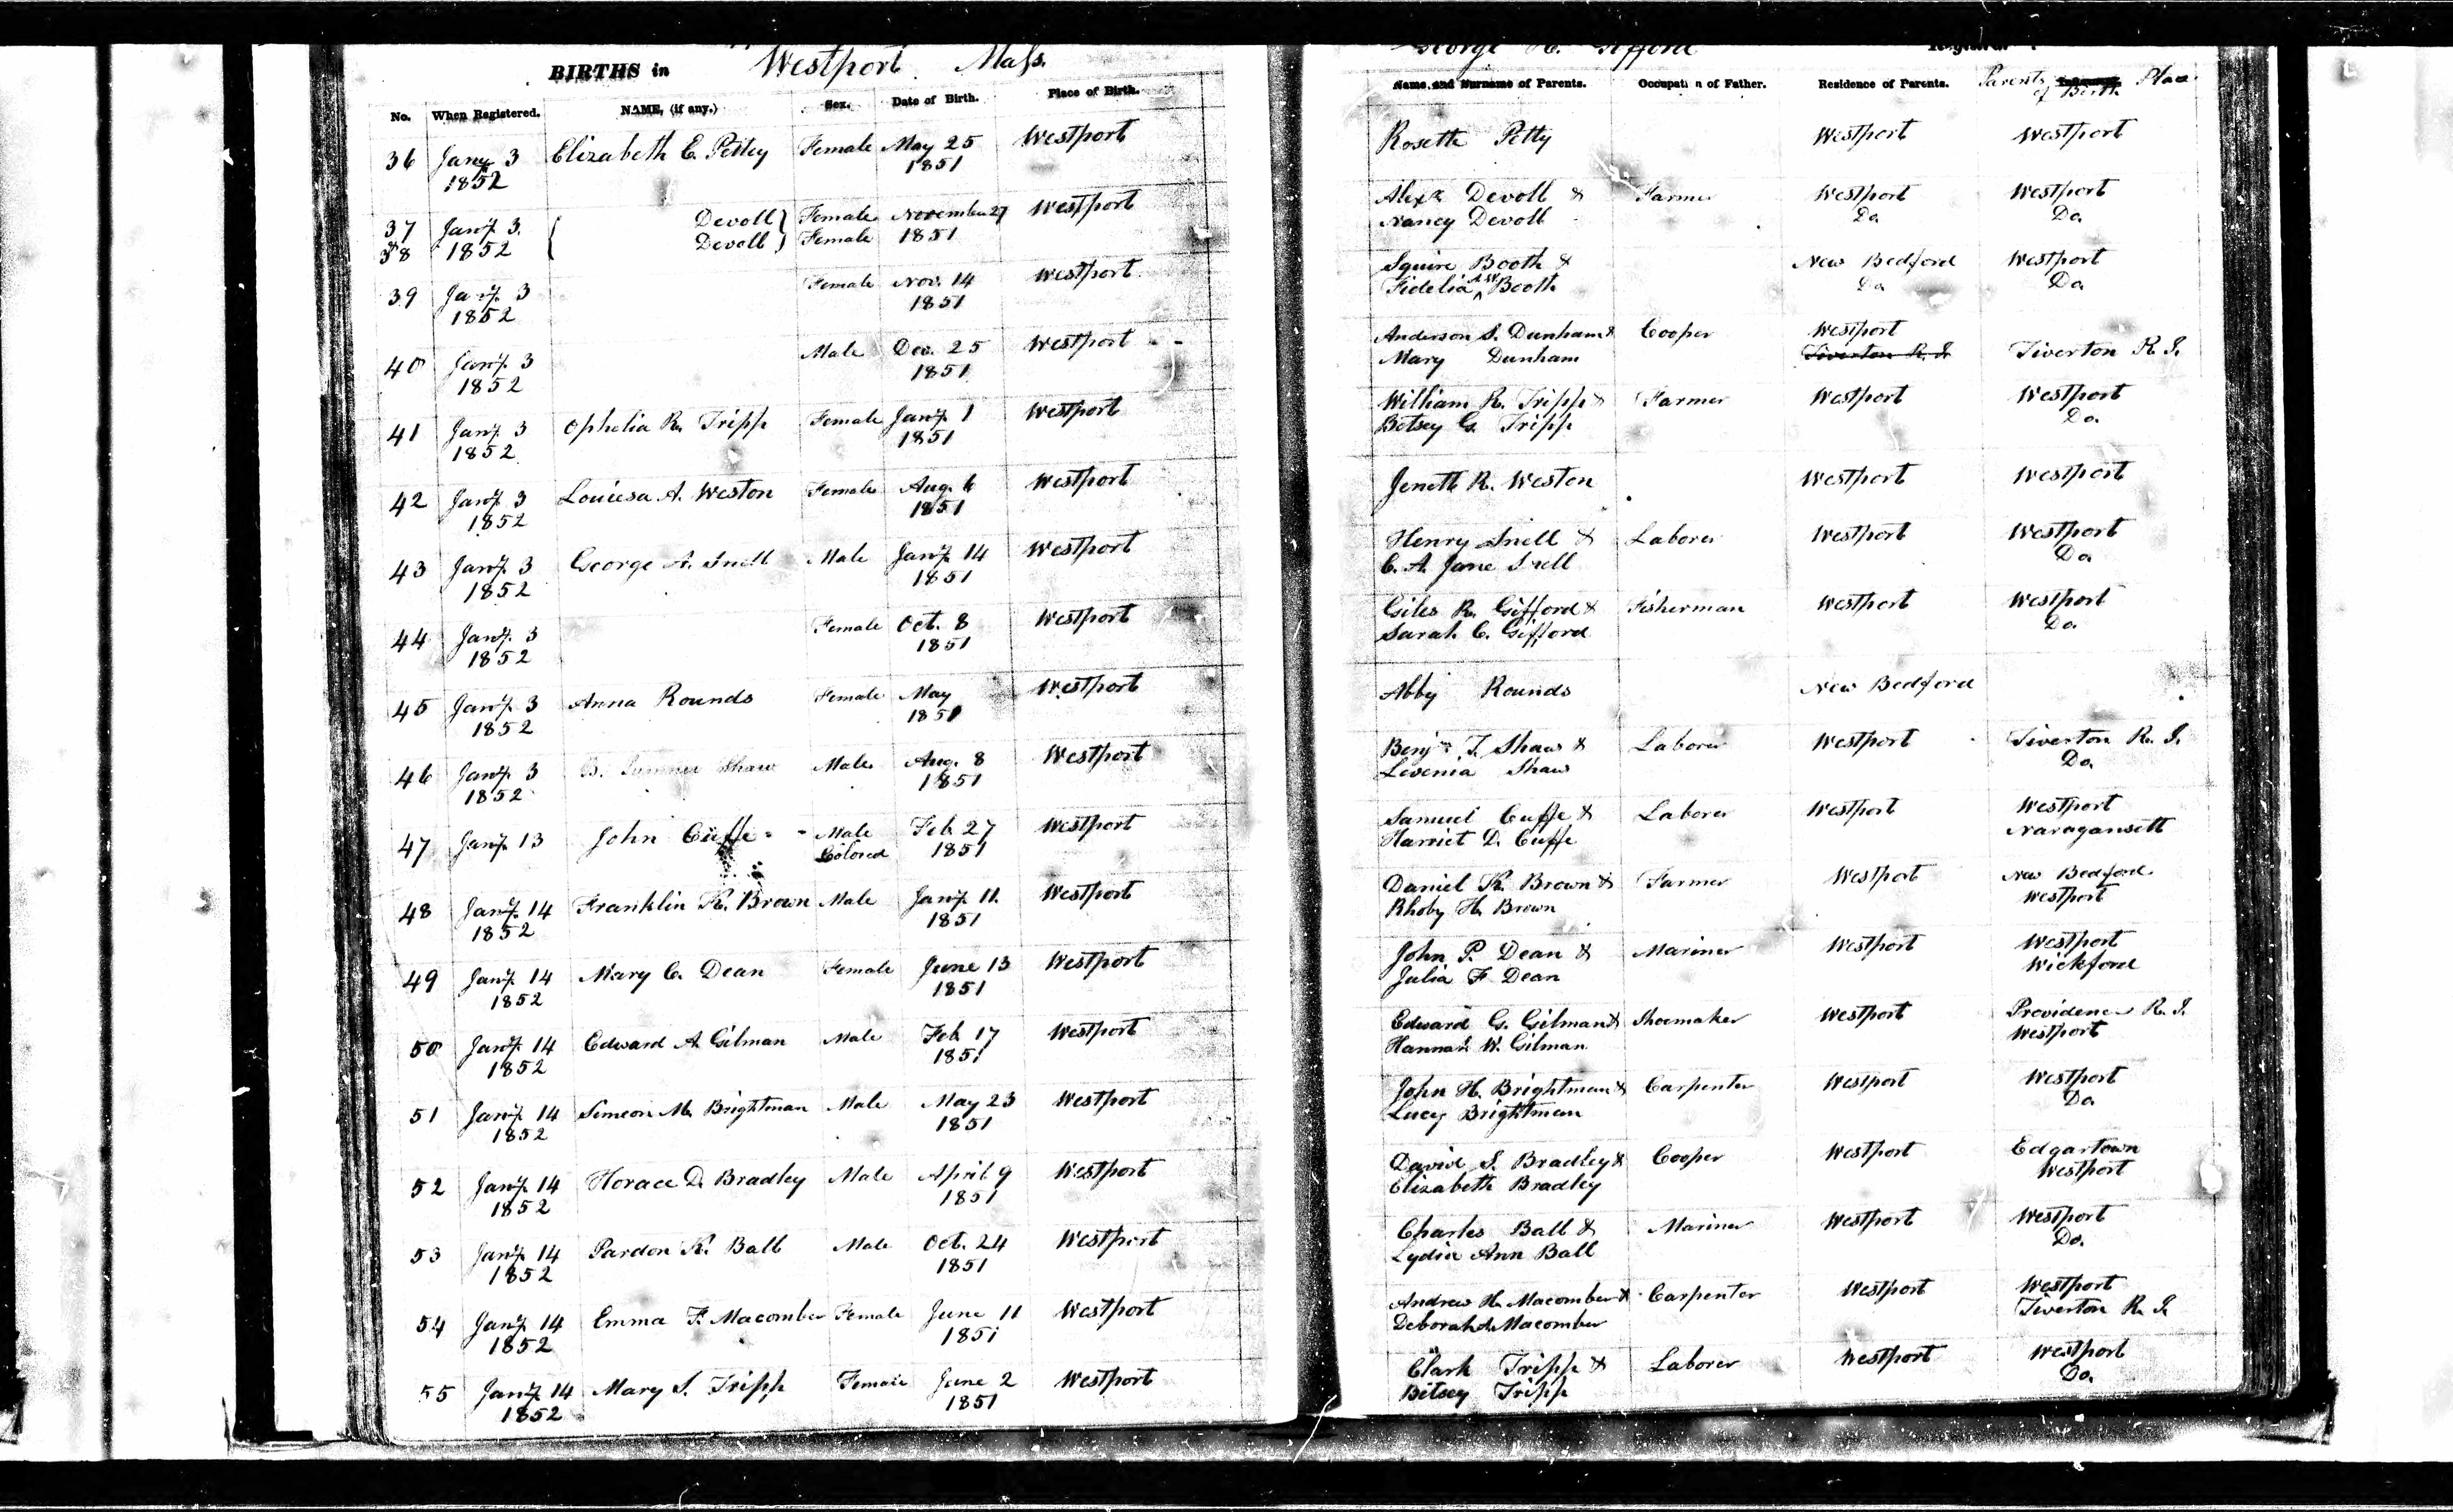 BIRTHS in Westport Mass.
George H. Gifford
No. When Registered. NAME, (if any.) Sex. Date of Birth. Place of Birth. Name and Surname of Parents. Occupation of Father. Residence of Parents. Parents Place
of Birth
36 Jany 3 Elizabeth C. Pettey Female May 25 Westport Rosetta Petty Westport Westport
1852 1851
37 Jany 3. Devoll Female November 27 Westport Alexr Devoll & Farmer Westport Westport
38 1852 Devoll Female 1851 Nancy Devoll Do Do.
39 Jany 3 Female Nov. 14 Westport Squire Booth & New Bedford Westport
1852 1851 Fidelia A W Booth Do Do.
40 Jany 3 Male Dec. 25 Westport Anderson S. Dunham & Cooper Westport
1852 1851 Mary Dunham Tiverton R. I. Tiverton R. I.
41 Jany 3 Ophelia R. Tripp Female Jany 1 Westport William R. Tripp & Farmer Westport Westport
1852 1851 Betsey G. Tripp Do.
42 Jany 3 Louiesa A. Weston Female Aug. 6 Westport Jenett R. Weston Westport Westport
1852 1851
43 Jany 3 George A. Snell Male Jany 14 Westport Henry Snell & Laborer Westport Westport
1852 1851 C. A. Jane Snell Do
44 Jany. 3 Female Oct. 8 Westport Giles R. Gifford & Fisherman Westport Westport
1852 1851 Sarah C. Gifford Do.
45 Jany 3 Anna Rounds Female May Westport Abby Rounds New Bedford
1852 1851
46 Jany 3 B. Sumner Shaw Male Aug. 8 Westport Benjn T. Shaw & Laborer Westport Tiverton R. I.
1852 1851 Levenia Shaw Do.
47 Jany 13 John Cuffe Male Feb 27 Westport Samuel Cuffe & Laborer Westport Westport
Colored 1851 Harriet D. Cuffe Naragansett
48 Jany 14 Franklin K. Brown Male Jany 11. Westport Daniel K. Brown & Farmer Westport New Bedford
1852 1851 Rhoby H. Brown Westport
49 Jany 14 Mary C. Dean Female June 13 Westport John P. Dean & Mariner Westport Westport
1852 1851 Julia F Dean Wickford
50 Jany 14 Edward A Gilman Male Feb 17 Westport Edward G. Gilman & Shoemaker Westport Providence R. I.
1852 1851 Hannah W. Gilman Westport
51 Jany 14 Simeon M. Brightman Male May 23 Westport John H. Brightman & Carpenter Westport Westport
1852 1851 Lucy Brightman Do.
52 Jany 14 Horace D. Bradley Male April 9 Westport David S. Bradley & Cooper Westport Edgartown
1852 1851 Elizabeth Bradley Westport
53 Jany 14 Pardon K. Ball Male Oct. 24 Westport Charles Ball & Mariner Westport Westport
1852 1851 Lydia Ann Ball Do.
54 Jany 14 Emma F. Macomber Female June 11 Westport Andrew H. Macomber & Carpenter Westport Westport
1852 1851 Deborah A. Macomber Tiverton R. I.
55 Jany 14 Mary S. Tripp Female June 2 Westport Clark Tripp & Laborer Westport Westport
1852 1851 Betsey Tripp Do.